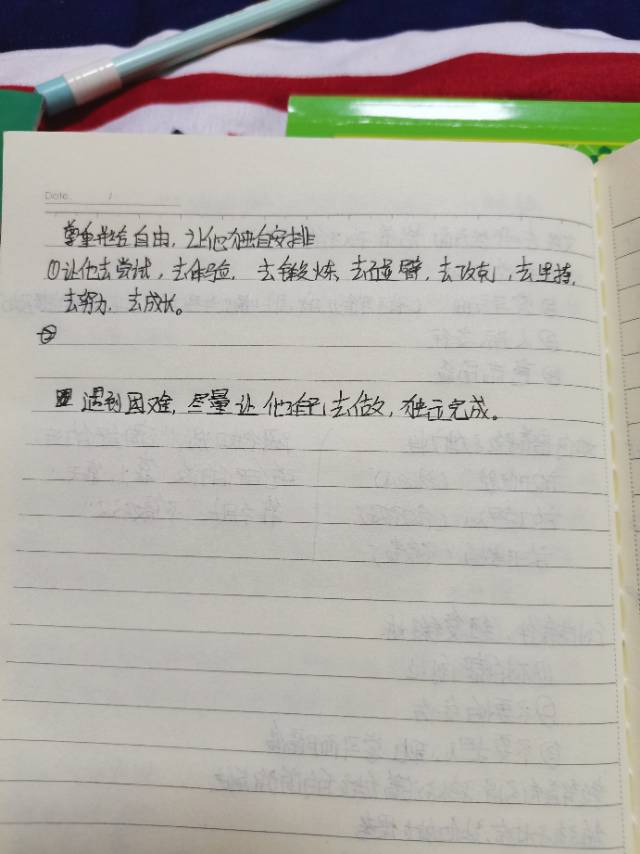 Date. /
尊重并给自由，让他独自安排
①让他去尝试，去体验，去锻炼，去碰壁，去攻克，去坚持，
去努力，去成长。
②
遇到困难，尽量让他自己去做，独立完成。